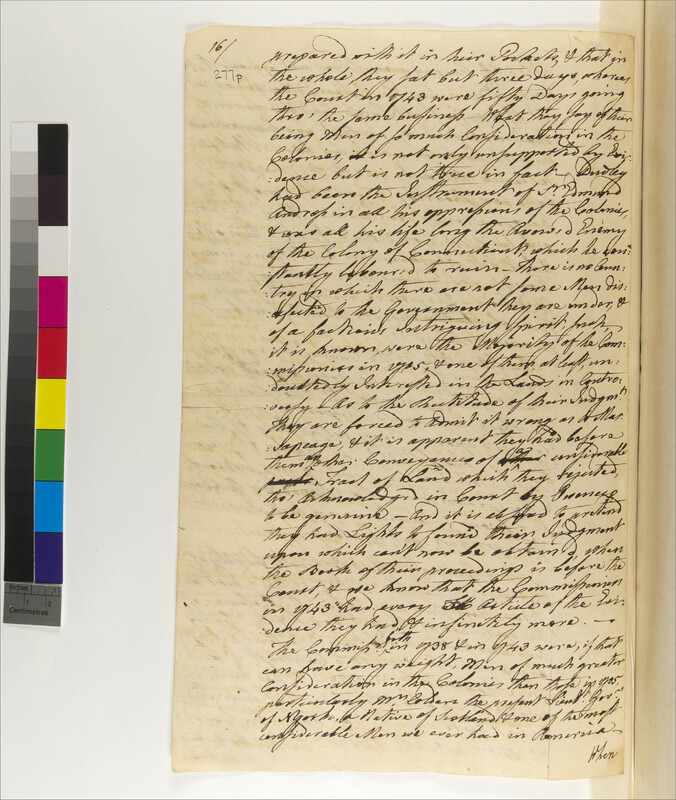 16/
277p
prepared with it in their Pockets, & that in
the whole they sat but three Days, whereas
the Court in 1743 were fifty Days going
thro' the same business – What they say of their
being Men of so much Consideration in the
Colonies, is not only unsupported by Evi-
:dence but is not true in fact – Dudley
had been the Instrument of Sr. Edmund
Andros in all his oppressions of the Colonies,
& was all his life long the avowed Enemy
of the Colony of Connecticut, which he con-
:stantly laboured to ruin – There is no Coun-
:try in which there are not some Men dis-
:afected to the Government they are under, &
of a factious Intriguing Spirit, such
it is known, were the Majority of the Com-
:missioners in 1705, & one of them at least, un-
:doubtedly Interested in the Lands in Contro-
:versy – As to the Rectitude of their Judgmt.
they are forced to admit it wrong as to Mas-
:sapeage, & it is apparent they had before
them Conveyances of considerable
Tract of Land which they rejected,
tho' Acknowledged in Court by Oweneco
to be genuine – And it is absurd to pretend
they had Lights to found their Judgment
upon which can't now be obtain'd, when
the Book of their proceedings is before the
Court, & we know that the Commissioners
in 1743 had every Article of the Evi-
:dence they had & infinitely more. –
The Commissrs. both in 1738 & in 1743 were, if that
can have any weight, Men of much greater
Consideration in the Colonies than those in 1705,
particularly Mr. Colden the present Lieut. Govr.
of N york, a Native of Scotland & one of the most
considerable Men we ever had in America –
When